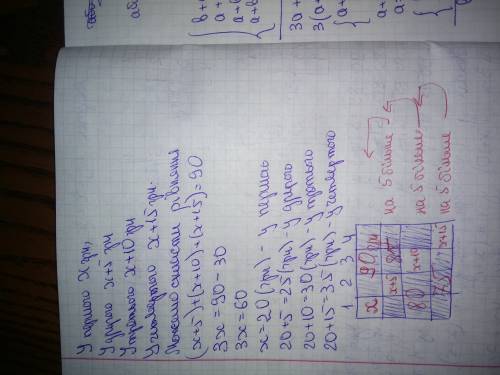 У першого х грн,
У другого х+5 грн
У третього х+10 грн
У четвертого х+15 грн.
Можемо скласти рівняння
(х+5)+(х+10)+(х+15)=90
3х=90-30
3х=60
х=20 (грн) - у першого
20+5=25 (грн) - у другого
20+10=30 (грн) - у третього
20+15=35 (грн) - у четвертого
1 2 3 4
х 90 грн
х+5 85 на 5 більше
80 х+10 на 5 більше
75 х+15 на 5 більше